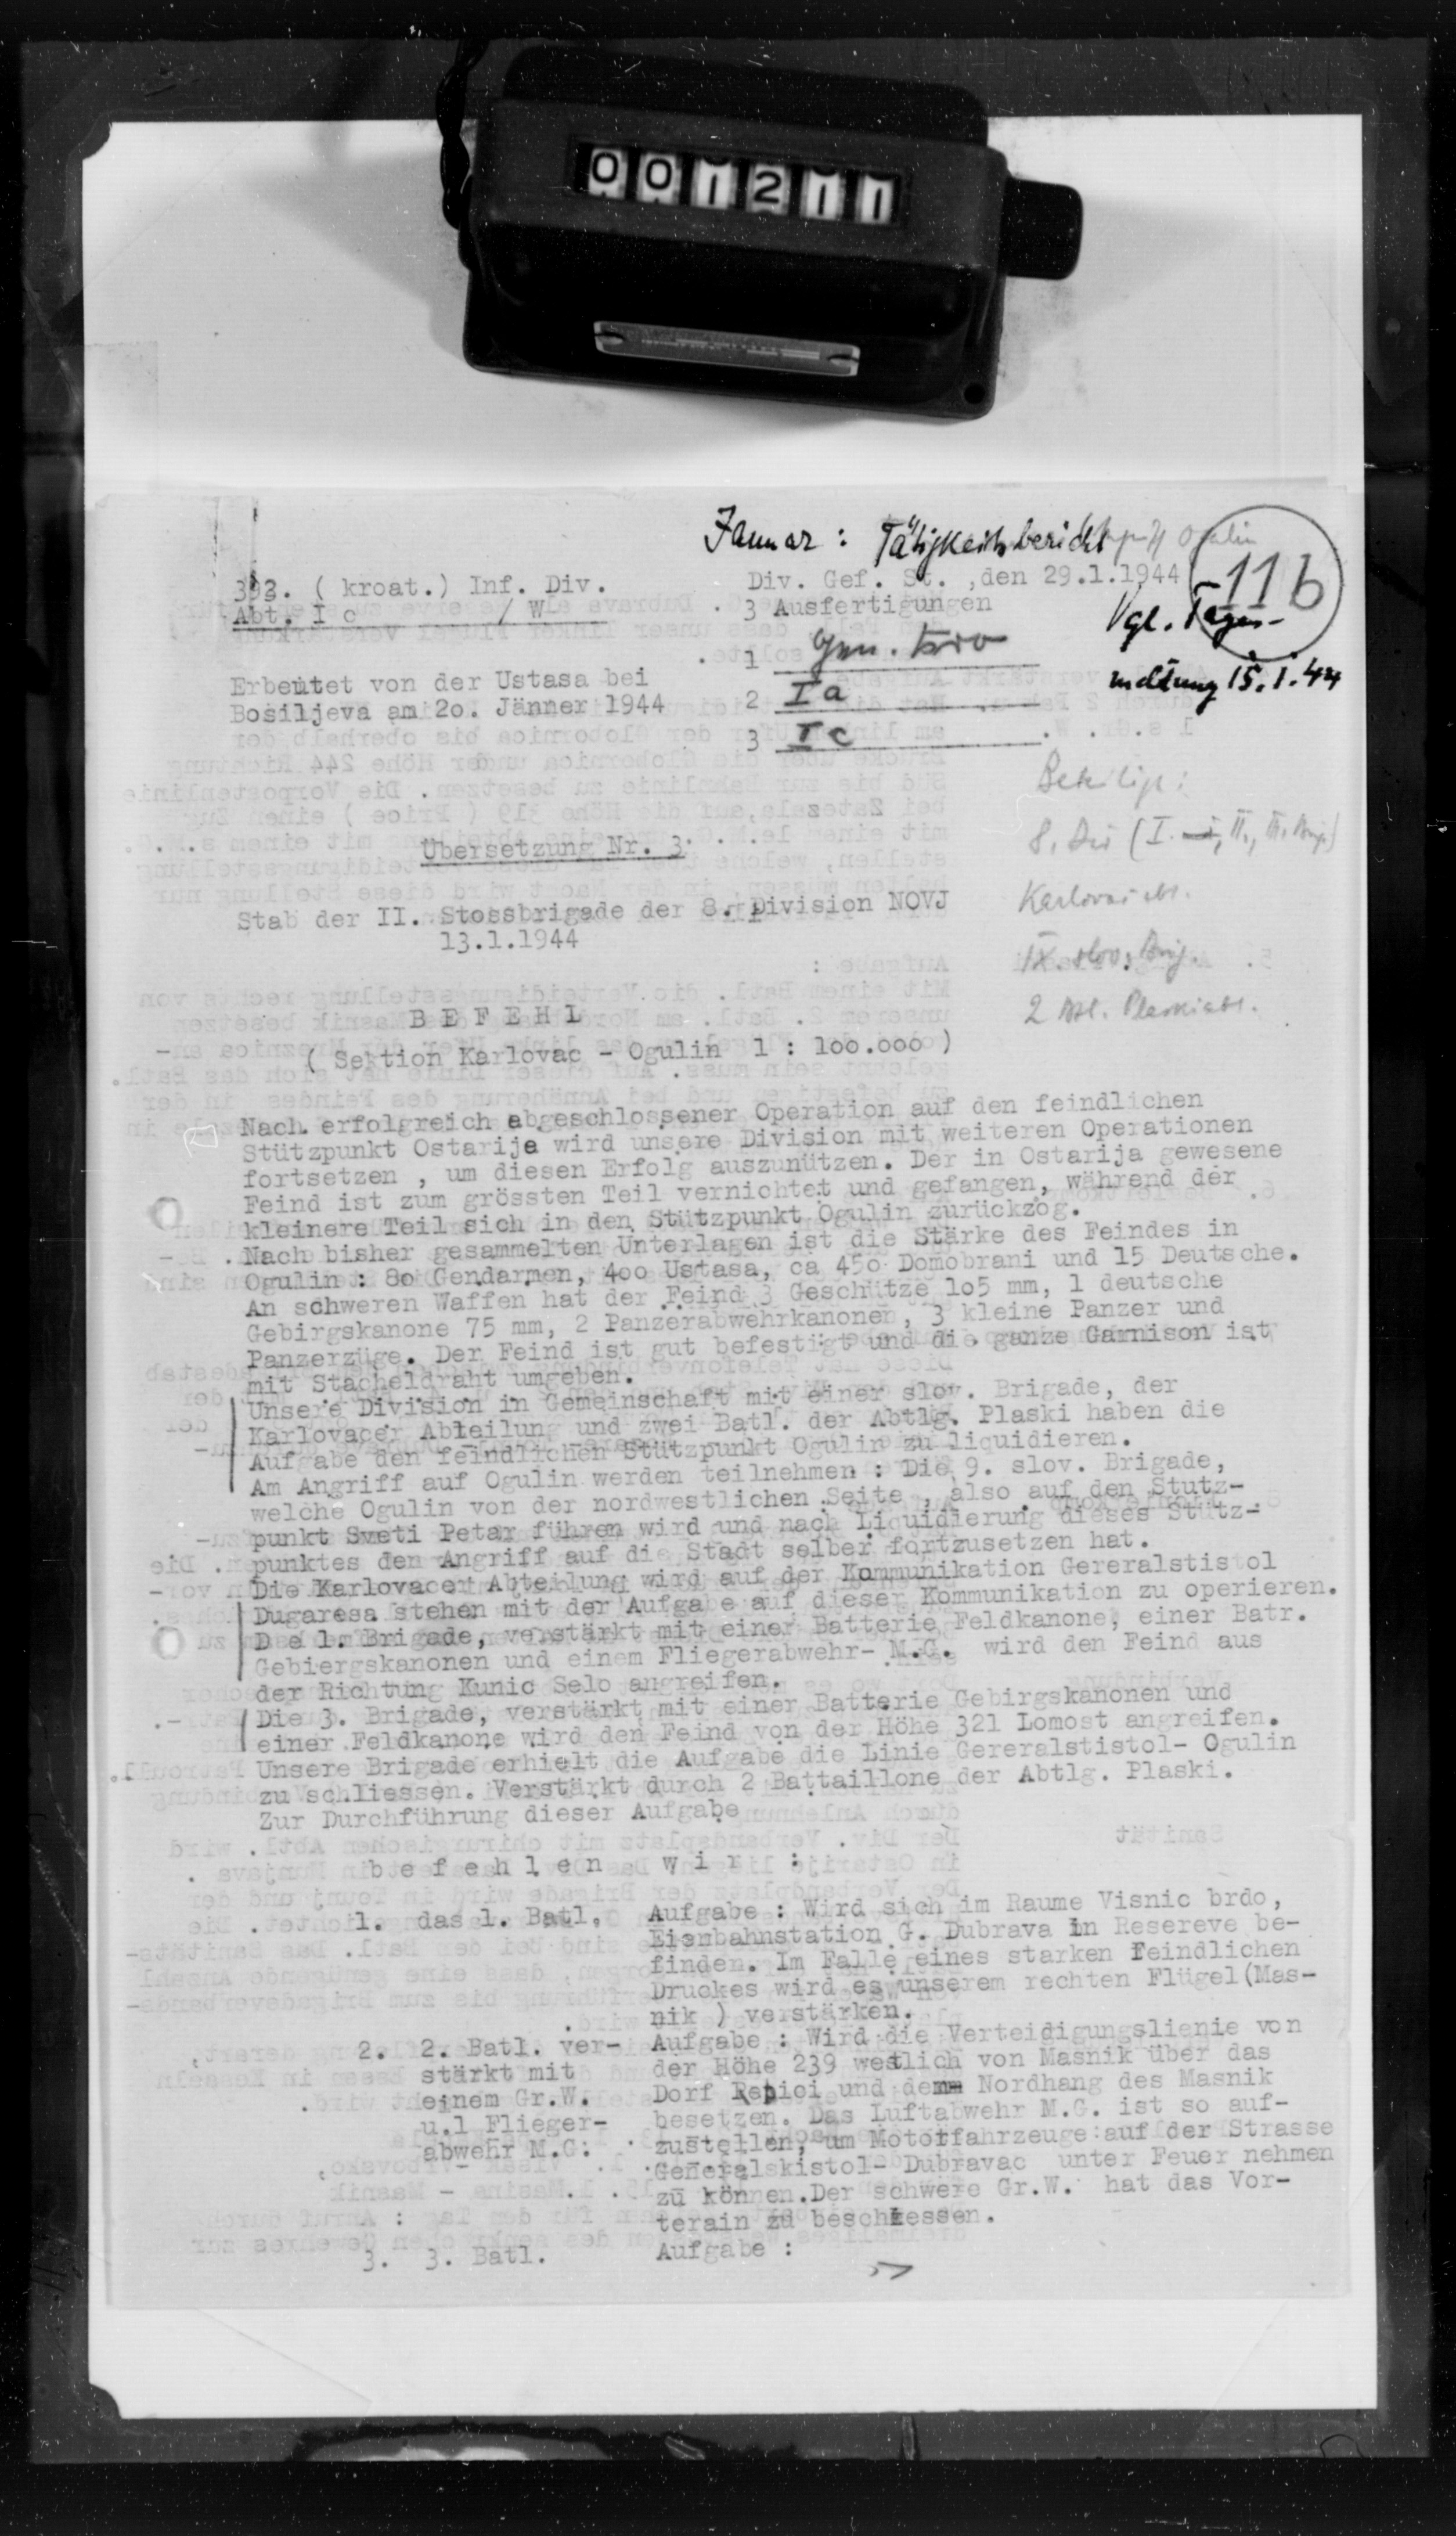 001211
Januar : Tätigkeitsbericht
11b
393. ( kroat.) Inf. Div.
Abt. I c / W
Div. Gef. St. ,den 29.1.1944
3 Ausfertigungen
Vgl. Tages-
meldung 15.1.44
1
2 Ia
3 Ic
Erbeutet von der Ustasa bei
Bosiljeva am 2o. Jänner 1944
Übersetzung Nr. 3.
Stab der II. Stossbrigade der 8. Division NOVJ
13.1.1944
B E F E H L
( Sektion Karlovac - Ogulin 1 : 1oo.ooo )
Nach erfolgreich abgeschlossener Operation auf den feindlichen
Stützpunkt Ostarija wird unsere Division mit weiteren Operationen
fortsetzen , um diesen Erfolg auszunützen. Der in Ostarija gewesene
Feind ist zum grössten Teil vernichtet und gefangen, während der
kleinere Teil sich in den Stützpunkt Ogulin zurückzog.
Nach bisher gesammelten Unterlagen ist die Stärke des Feindes in
Ogulin : 8o Gendarmen, 4oo Ustasa, ca 45o Domobrani und 15 Deutsche.
An schweren Waffen hat der Feind 3 Geschütze 1o5 mm, 1 deutsche
Gebirgskanone 75 mm, 2 Panzerabwehrkanonen, 3 kleine Panzer und
Panzerzüge. Der Feind ist gut befestigt und die ganze Garnison ist
mit Stacheldraht umgeben.
Unsere Division in Gemeinschaft mit einer slov. Brigade, der
Karlovacer Abteilung und zwei Batl. der Abtlg. Plaski haben die
Aufgabe den feindlichen Stützpunkt Ogulin zu liquidieren.
Am Angriff auf Ogulin werden teilnehmen : Die 9. slov. Brigade,
welche Ogulin von der nordwestlichen Seite , also auf den Stutz-
punkt Sveti Petar führen wird und nach Liquidierung dieses Stütz-
punktes den Angriff auf die Stadt selber fortzusetzen hat.
Die Karlovacer Abteilung wird auf der Kommunikation Gereralstistol
Dugaresa stehen mit der Aufgabe auf dieser Kommunikation zu operieren.
D e 1. Brigade, verstärkt mit einer Batterie Feldkanone, einer Batr.
Gebiergskanonen und einem Fliegerabwehr- M.G. wird den Feind aus
der Richtung Kunic Selo angreifen.
Die 3. Brigade, verstärkt mit einer Batterie Gebirgskanonen und
einer Feldkanone wird den Feind von der Höhe 321 Lomost angreifen.
Unsere Brigade erhielt die Aufgabe die Linie Gereralstistol- Ogulin
zu schliessen. Verstärkt durch 2 Battaillone der Abtlg. Plaski.
Zur Durchführung dieser Aufgabe
b e f e h l e n w i r :
1. das 1. Batl. Aufgabe : Wird sich im Raume Visnic brdo,
Eisnbahnstation G. Dubrava in Resereve be-
finden. Im Falle eines starken feindlichen
Druckes wird es unserem rechten Flügel(Mas-
nik ) verstärken.
2. 2. Batl. ver- Aufgabe : Wird die Verteidigungslienie von
stärkt mit der Höhe 239 westlich von Masnik über das
einem Gr.W. Dorf und dem Nordhang des Masnik
u.1 Flieger- besetzen. Das Luftabwehr M.G. ist so auf-
abwehr M.G. zustellen, um Motorfahrzeuge auf der Strasse
Generalskistol- Dubravac unter Feuer nehmen
zu können.Der schwere Gr.W. hat das Vor-
terain zu beschiessen.
3. 3. Batl. Aufgabe :